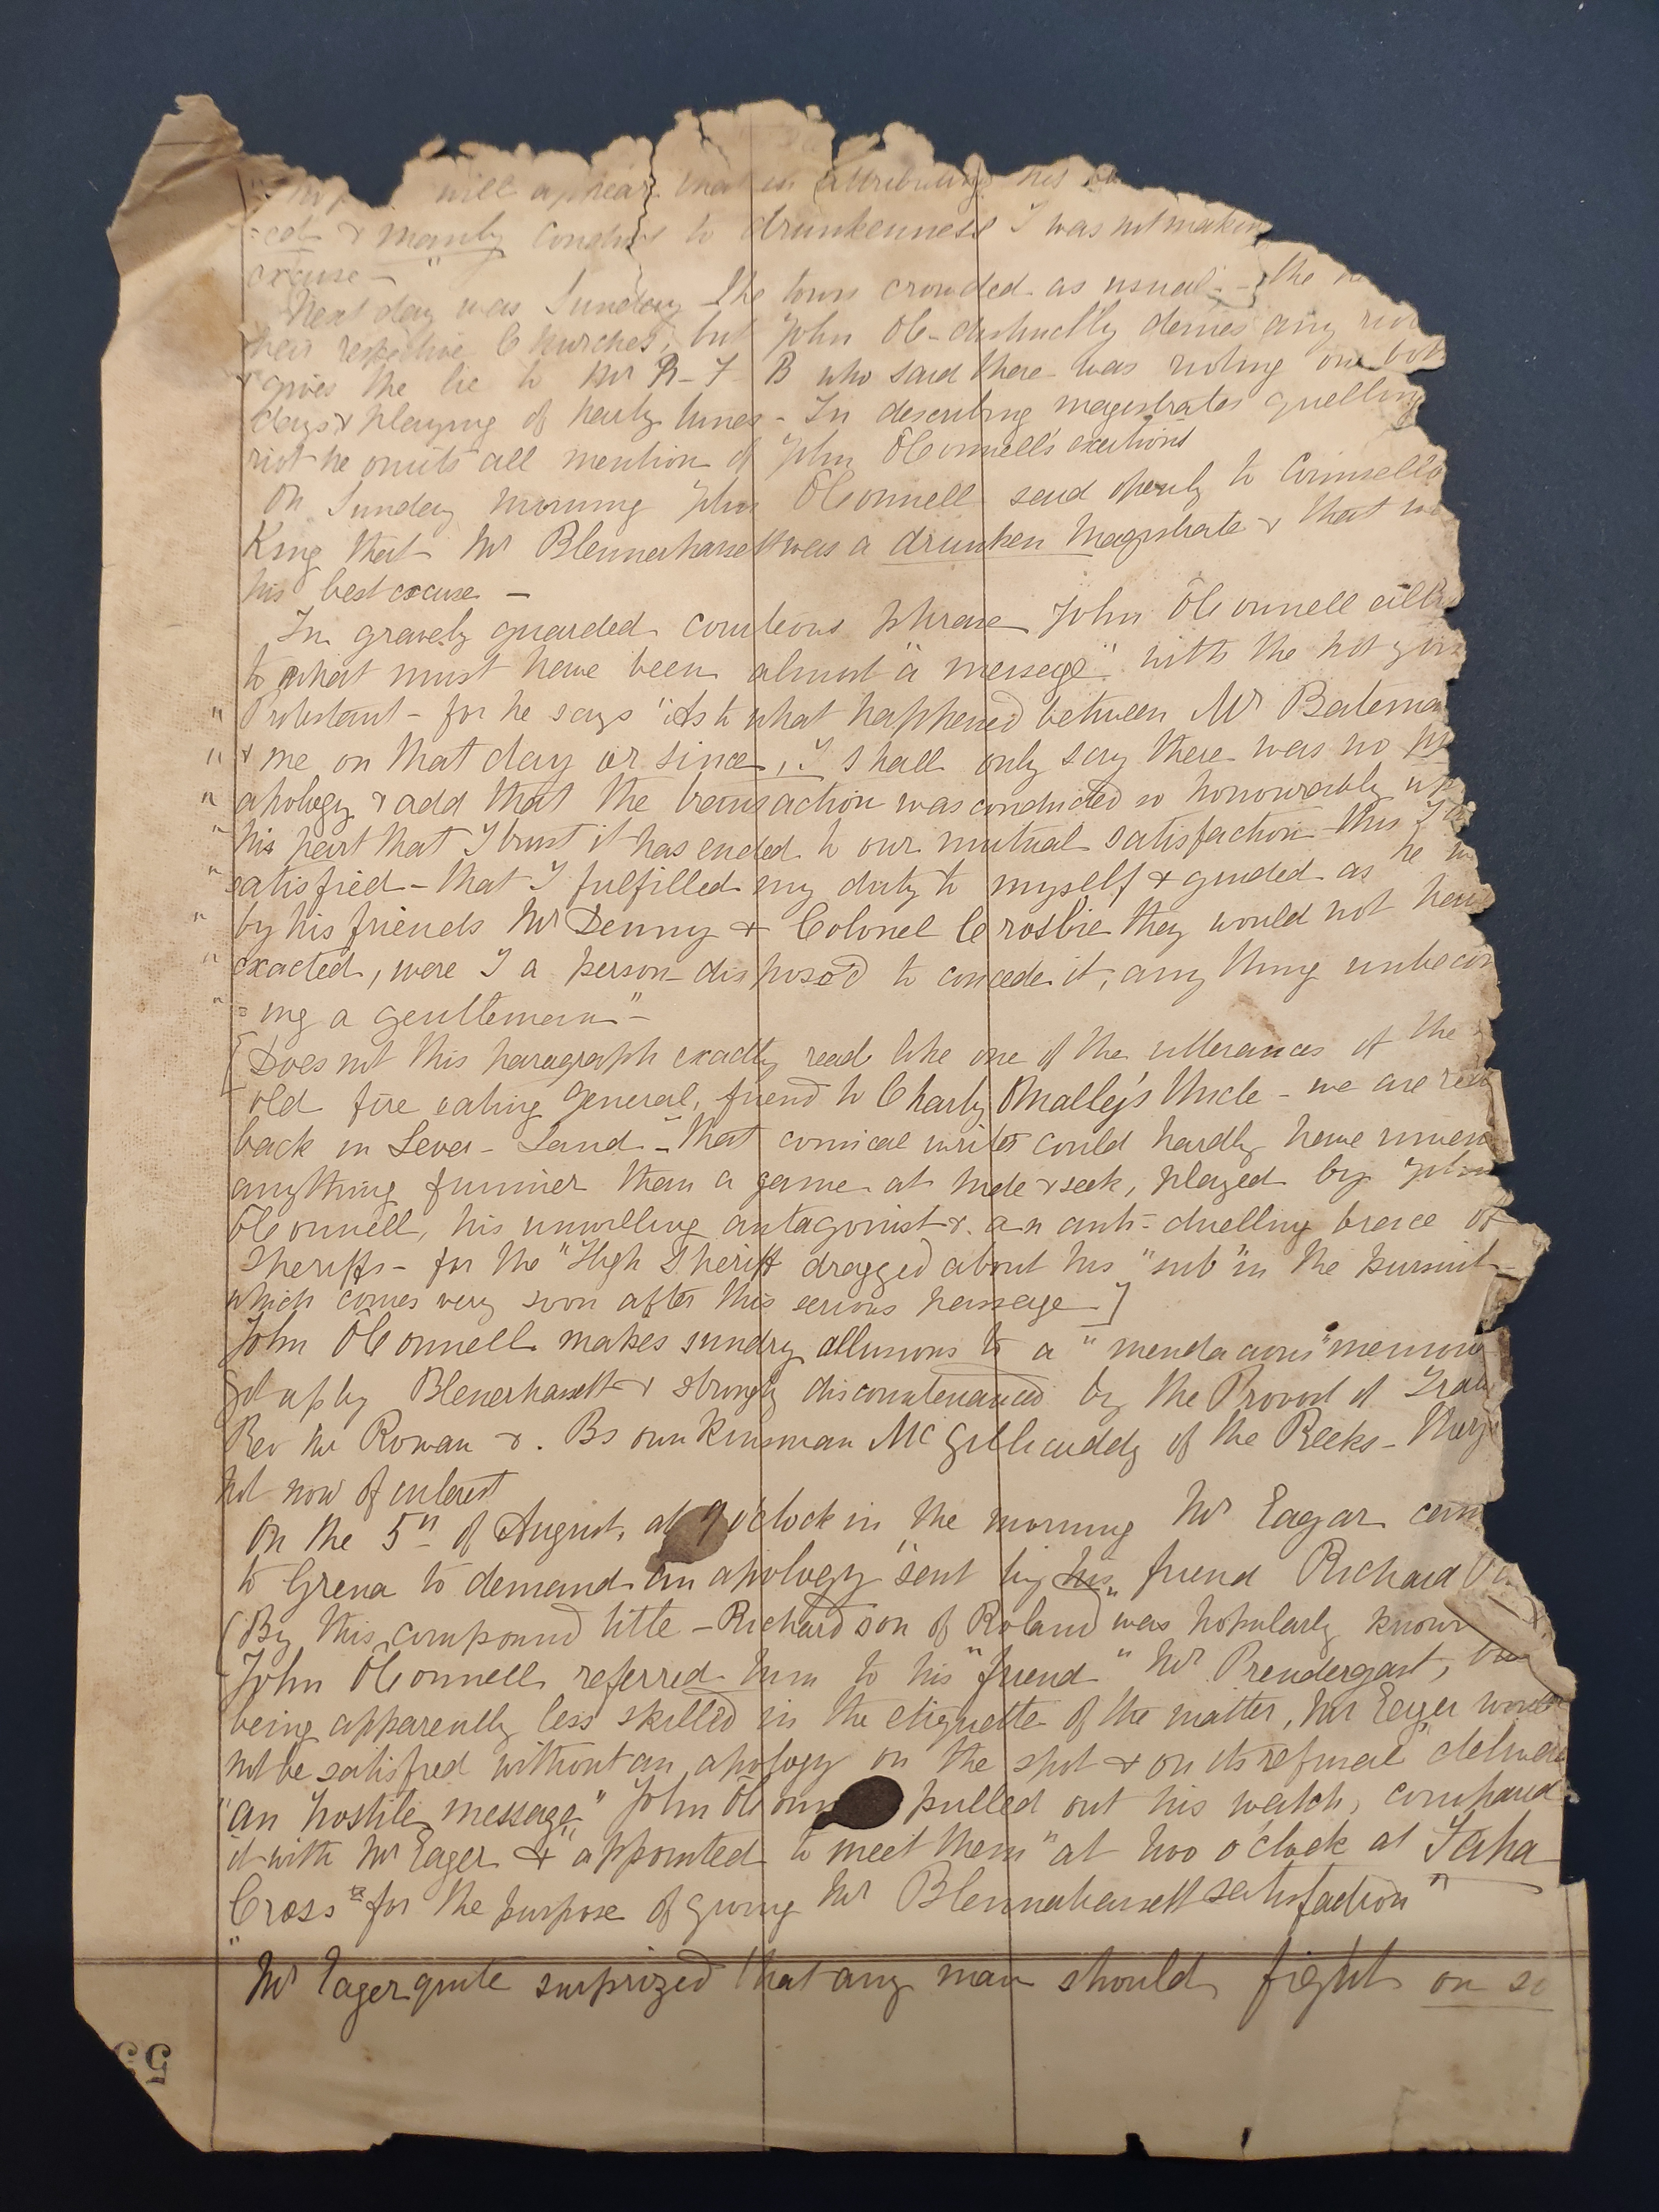 will appear that in attributing his
=cal & manly conduct to drunkenness I was not making
excuse - "
Next day was Sunday the town crowded as usual - the
their respective Churches, but John OC- distinctly denies any riot
& gives the lie to Mr R - F B who said there was rioting on both
days & playing of party tunes - In describing magistrates quelling
riot he omits all mention of John OConnell's exertions
On Sunday morning John OConnell said openly to Counsello
King that Mr Blennerhassett was a drunken Magistrate & that was
his best excuse -
In gravely guarded courteous phrase John OConnell
to what must have been almost "a message" with the hot
" Protestant - for he says "As to what happened between Mr Batema
" & me on that day or since, I shall only say there was no
" apology & add that the transaction was conducted so honourably up
" his part that I trust it has ended to our mutual satisfaction - this I
" satisfied - that I fulfilled my duty to myself & guided as he
" by his friends Mr Denny & Colonel Crosbie they would not have
" exacted, were I a person disposed to concede it, any thing unbecom
" = ing a gentleman" -
[Does not this paragraph exactly read like one of the utterances of the
old fire eating General, friend to Charly OMalley's Uncle - we are
back in Lever - Land - that comical writer could hardly have inven
anything funnier than a game at hide & seek, played by John
OConnell, his unwilling antagonist & an anti = duelling brace of
Sheriffs - for the "High Sheriff dragged about his "sub" in the pursuit -
which comes very soon after this serious passage -]
John OConnell makes sundry allusions to a "mendacious" memori
got up by Blenerhassett & strongly discountenanced by the Provost of Tralee
Rev Mr Rowan & Bs own kinsman McGillicuddy of the Reeks - they
not now of interest
On the 5th of August, at 9 o'clock in the morning Mr Eagar came
to Grena to demand an apology "sent by his" friend Richard
(By this compound title - Richard son of Roland was popularly known
John OConnell referred him to his "friend" Mr Prendergast, but
being apparently less skilled in the etiquette of the matter, Mr Eager would
not be satisfied without an apology on the spot & on its refusal "delivere
"an hostile message" John OConn pulled out his watch, compared
it with Mr Eager & "appointed to meet them" at two o'clock at Faha
Cross "for the purpose of giving Mr Blennerhassett satisfaction"
"
Mr Eager quite surprized that any man should fight on so
53